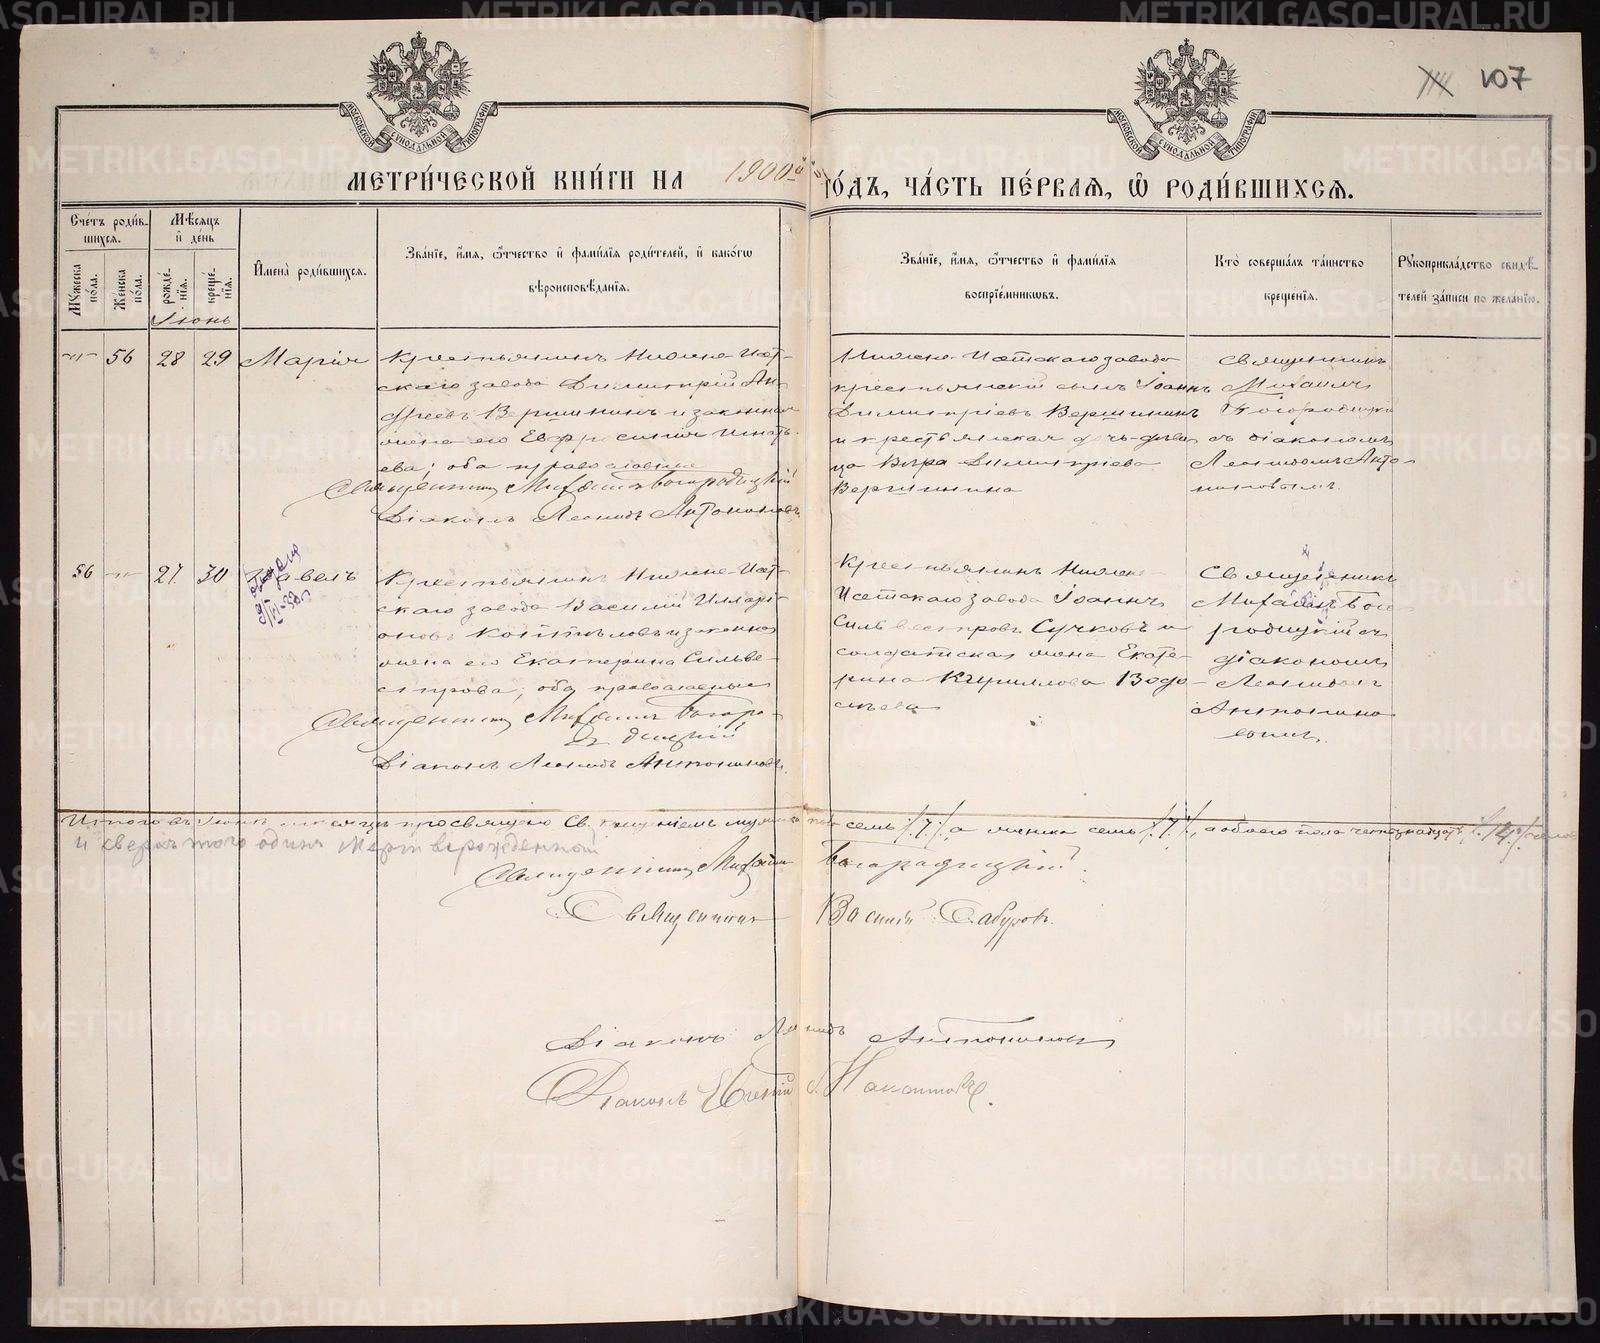 107
МОСКОВСКОЙ СУНОДАЛЬНОЙ ТИПОГРАФИИ
МОСКОВСКОЙ СУНОДАЛЬНОЙ ТИПОГРАФИИ
МЕТРИ́ЧЕСКОЙ КНИ́ГИ НА 1900й ГО́ДЪ, ЧА́СТЬ ПЕ́РВАЯ, Ѽ РОДИ́ВШИХСЯ.
Сче́тъ роди́в-
шихся.
Мѣ́сяцъ
и҆ де́нь
Му́жеска по́ла.
Же́нска по́ла.
рожде́-нїя.
креще́-нїя.
И҆мена̀ роди́вшихся.
Зва́нїе, и҆́мя, ѻ҆́тчество и҆ фами́лїя роди́телей, и҆ како́гѡ
вѣроисповѣ́данїя.
Зва́нїе, и҆́мя, ѻ҆́тчество и҆ фами́лїя
воспрїе́мникѡвъ.
Кто̀ соверша́лъ та́инство
креще́нїя.
Рꙋкоприкла́дство свидѣ́-
телей за́писи по жела́нїю.
Іюнь
56 28 29 Марія
Крестьянинъ Нижне-Исет-
скаго завода Димитрій Ан-
дреевъ Вершининъ и законная
жена его Евфросинія Игнать-
ева; оба православные
Священникъ Михаилъ Богородицкій
Діаконъ Леонидъ Антониновъ
Нижне-Исетскаго завода
крестьянскій сынъ Іоаннъ
Димитріевъ Вершининъ
и крестьянская дочь-дѣви-
ца Вѣра Димитріева
Вершинина
Священникъ
Михаилъ
Богородицкій
съ діакономъ
Леонидомъ Анто-
ниновымъ.
56 27 30 Павелъ
Крестьянинъ Нижне-Исет-
скаго завода Василій Илларі-
оновъ и законная
жена его Екатерина Сильве-
строва; оба православные
Священникъ Михаилъ Богоро-
дицкій
Діаконъ Леонидъ Антониновъ.
Крестьянинъ Нижне-
Исетскаго завода Іоаннъ
Сильвестровъ Сучковъ и
солдатская жена Екате-
рина Кириллова Водо-
Священникъ
Михаилъ Бого-
родицкій съ
діакономъ
Леонидомъ
Антонино-
вымъ.
Итого въ Іюнѣ мѣсяцѣ просвящено Св. крещеніемъ мужска пола семь /.7./ а женска семь /.7./, а обоего пола четырнадцать /.14./
и сверхъ того одинъ мертворожденной
Священникъ Михаилъ Богородицкій.
Священникъ Василій Сабуровъ.
Діаконъ Леонидъ Антониновъ
Діаконъ
METRIKI.GASO-URAL.RU